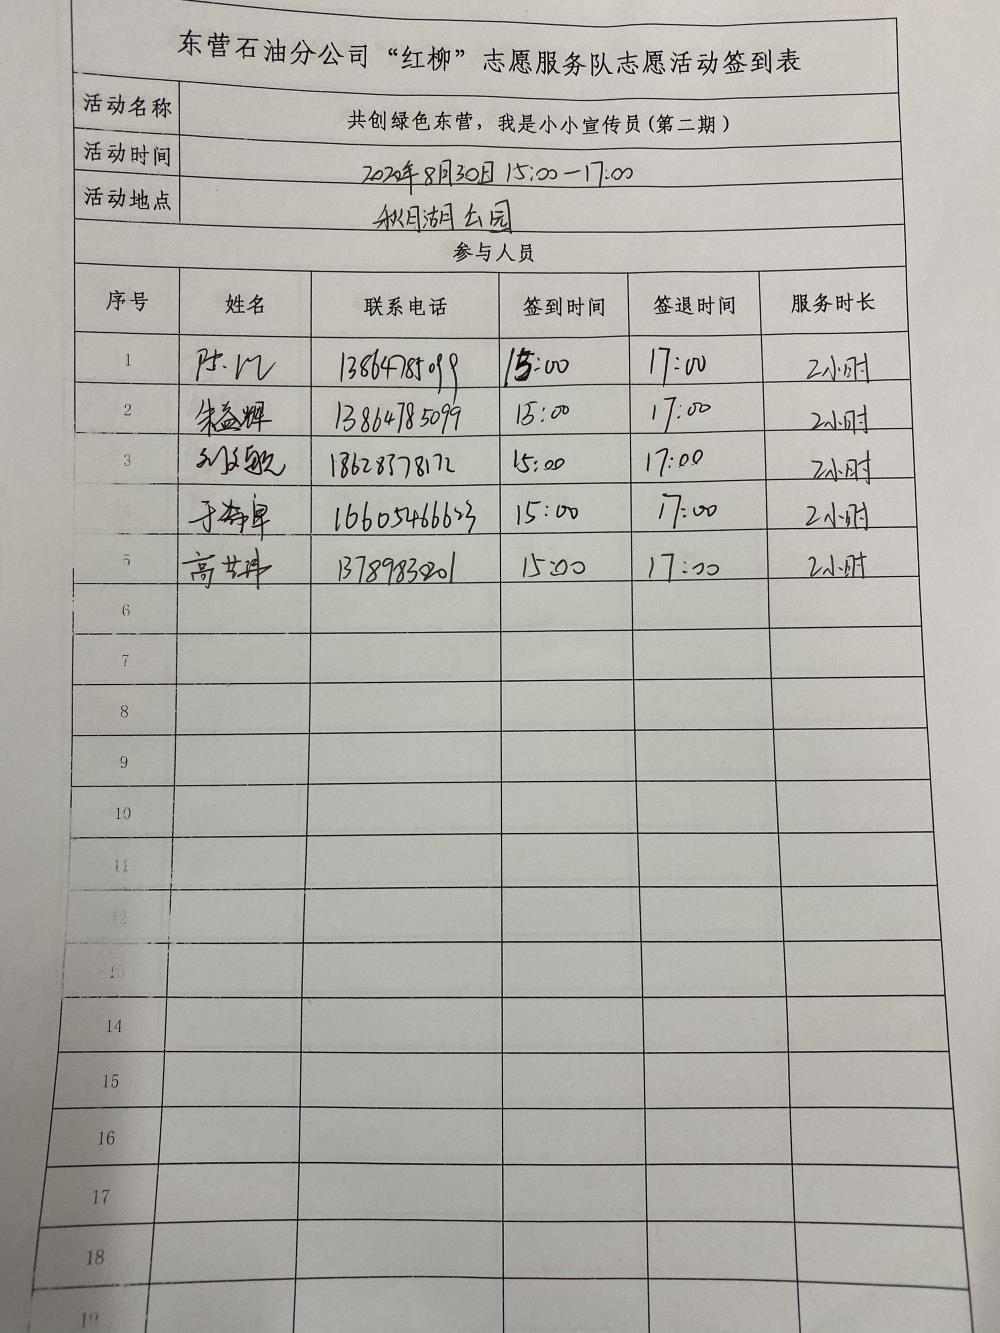 东营石油分公司“红柳”志愿服务队志愿活动签到表
活动名称 共创绿色东营，我是小小宣传员(第二期)
活动时间 2022年8月30日 15:00-17:00
活动地点 秋月湖公园
参与人员
序号 姓名 联系电话 签到时间 签退时间 服务时长
1 13864785099 15:00 17:00 2小时
2 朱益辉 13864785099 15:00 17:00 2小时
3 18628378172 15:00 17:00 2小时
4 16605466623 15:00 17:00 2小时
5 高芸玮 15:00 17:00 2小时
6
7
8
9
10
11
12
13
14
15
16
17
18
19